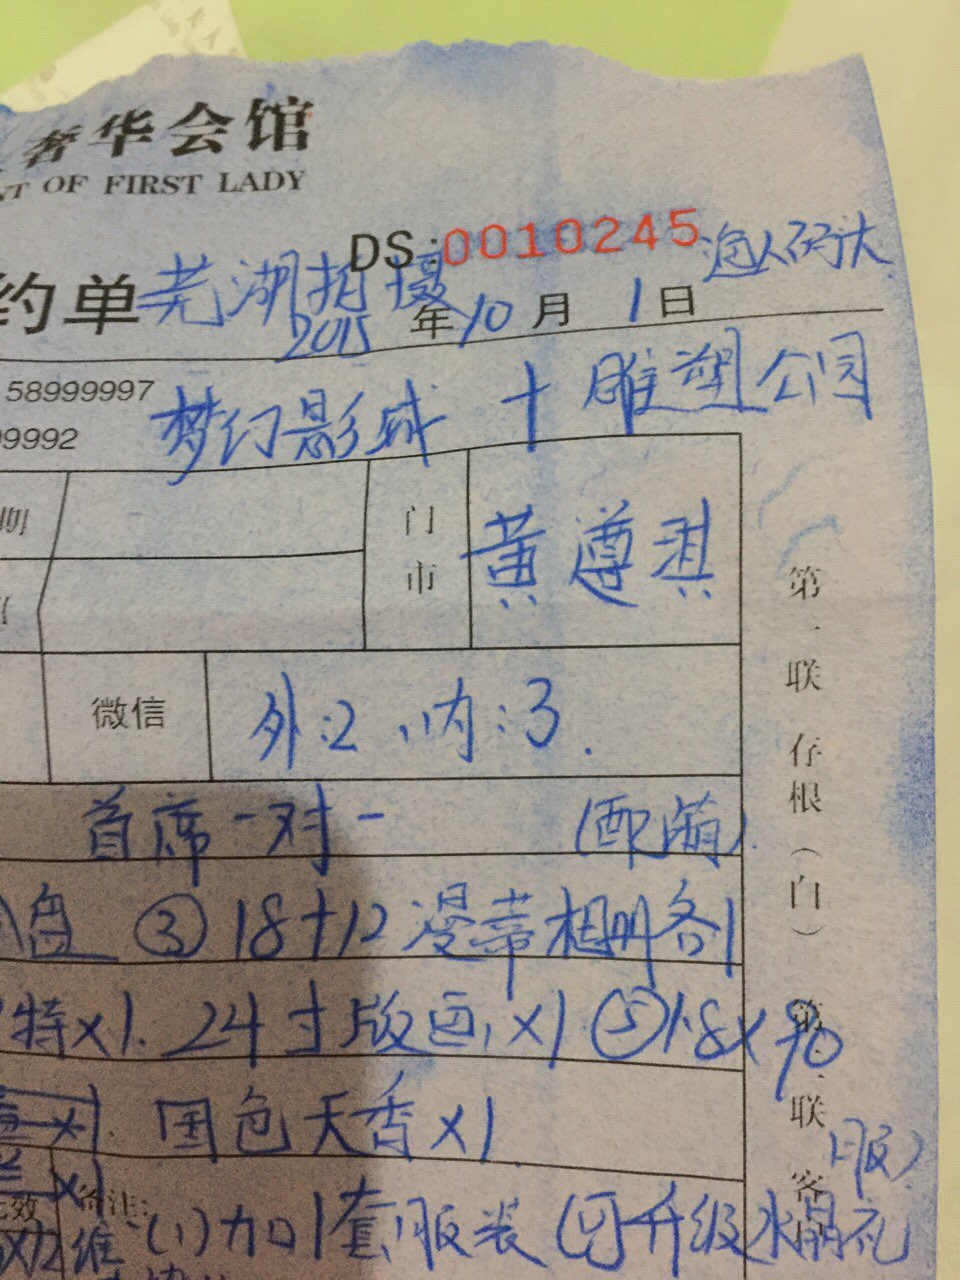 奢华会馆
NT OF FIRST LADY
DS:0010245
约单 芜湖拍摄
2015年10月1日
58999997
99992
梦幻影城 + 雕塑公园
期
门市
黄遵淇
微信
外:2、内:3.
首席一对一
盘 ③ 18+12 漫蒂相册各1
特x1. 24寸版画x1 ⑤ 1.8x90
x1. 国色天香x1
x1
效
备注:
(1)加1套服装 升级水晶礼服)
第一联 存根(白) 第二联 客